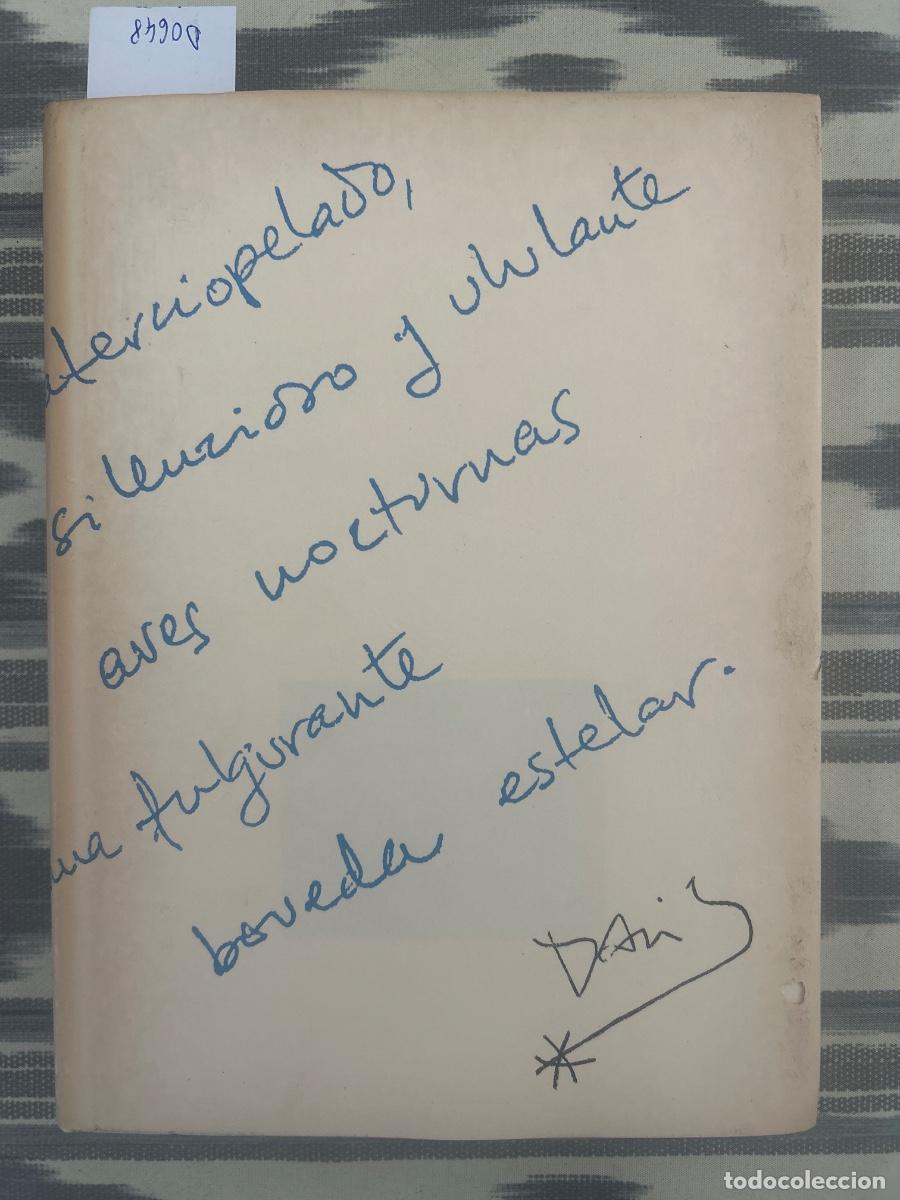 D0648
aterciopelado,
silencioso y ululante
aves nocturnas
una fulgurante
boveda estelar.
todocoleccion